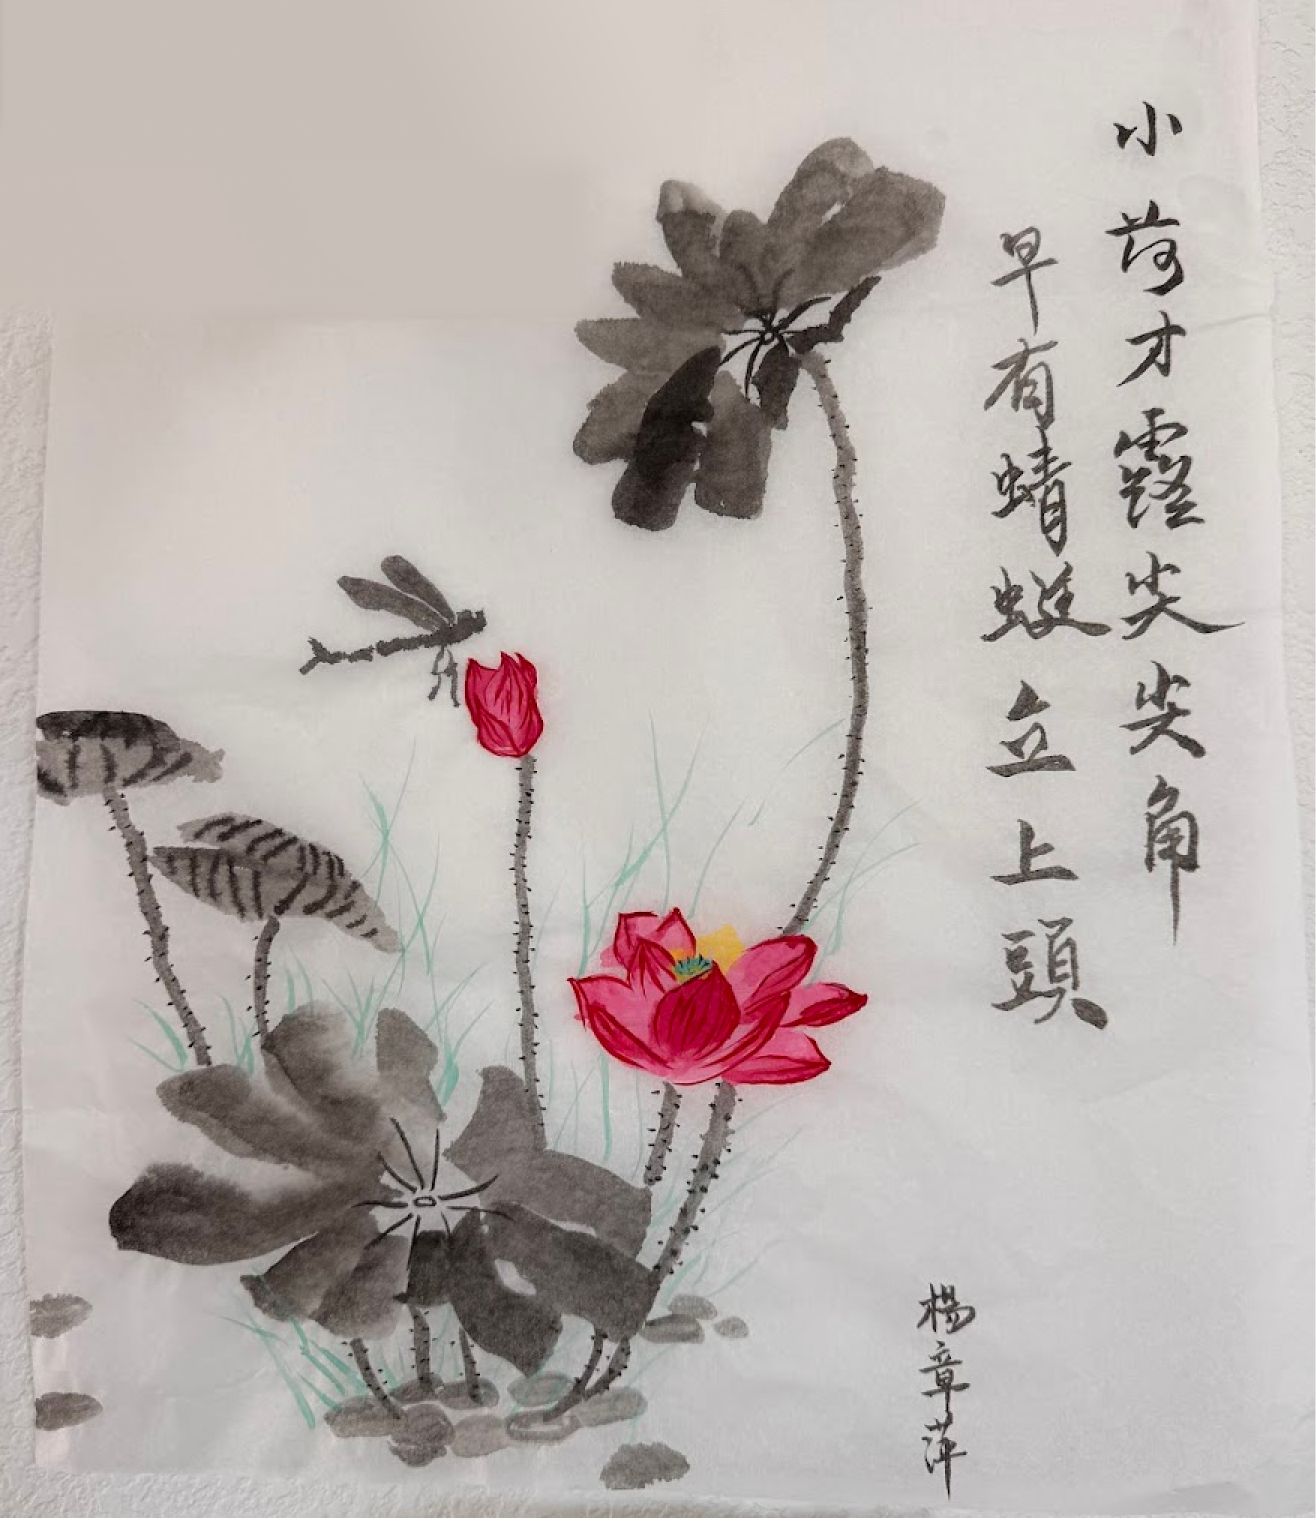 小荷才露尖尖角
早有蜻蜓立上頭
楊章萍